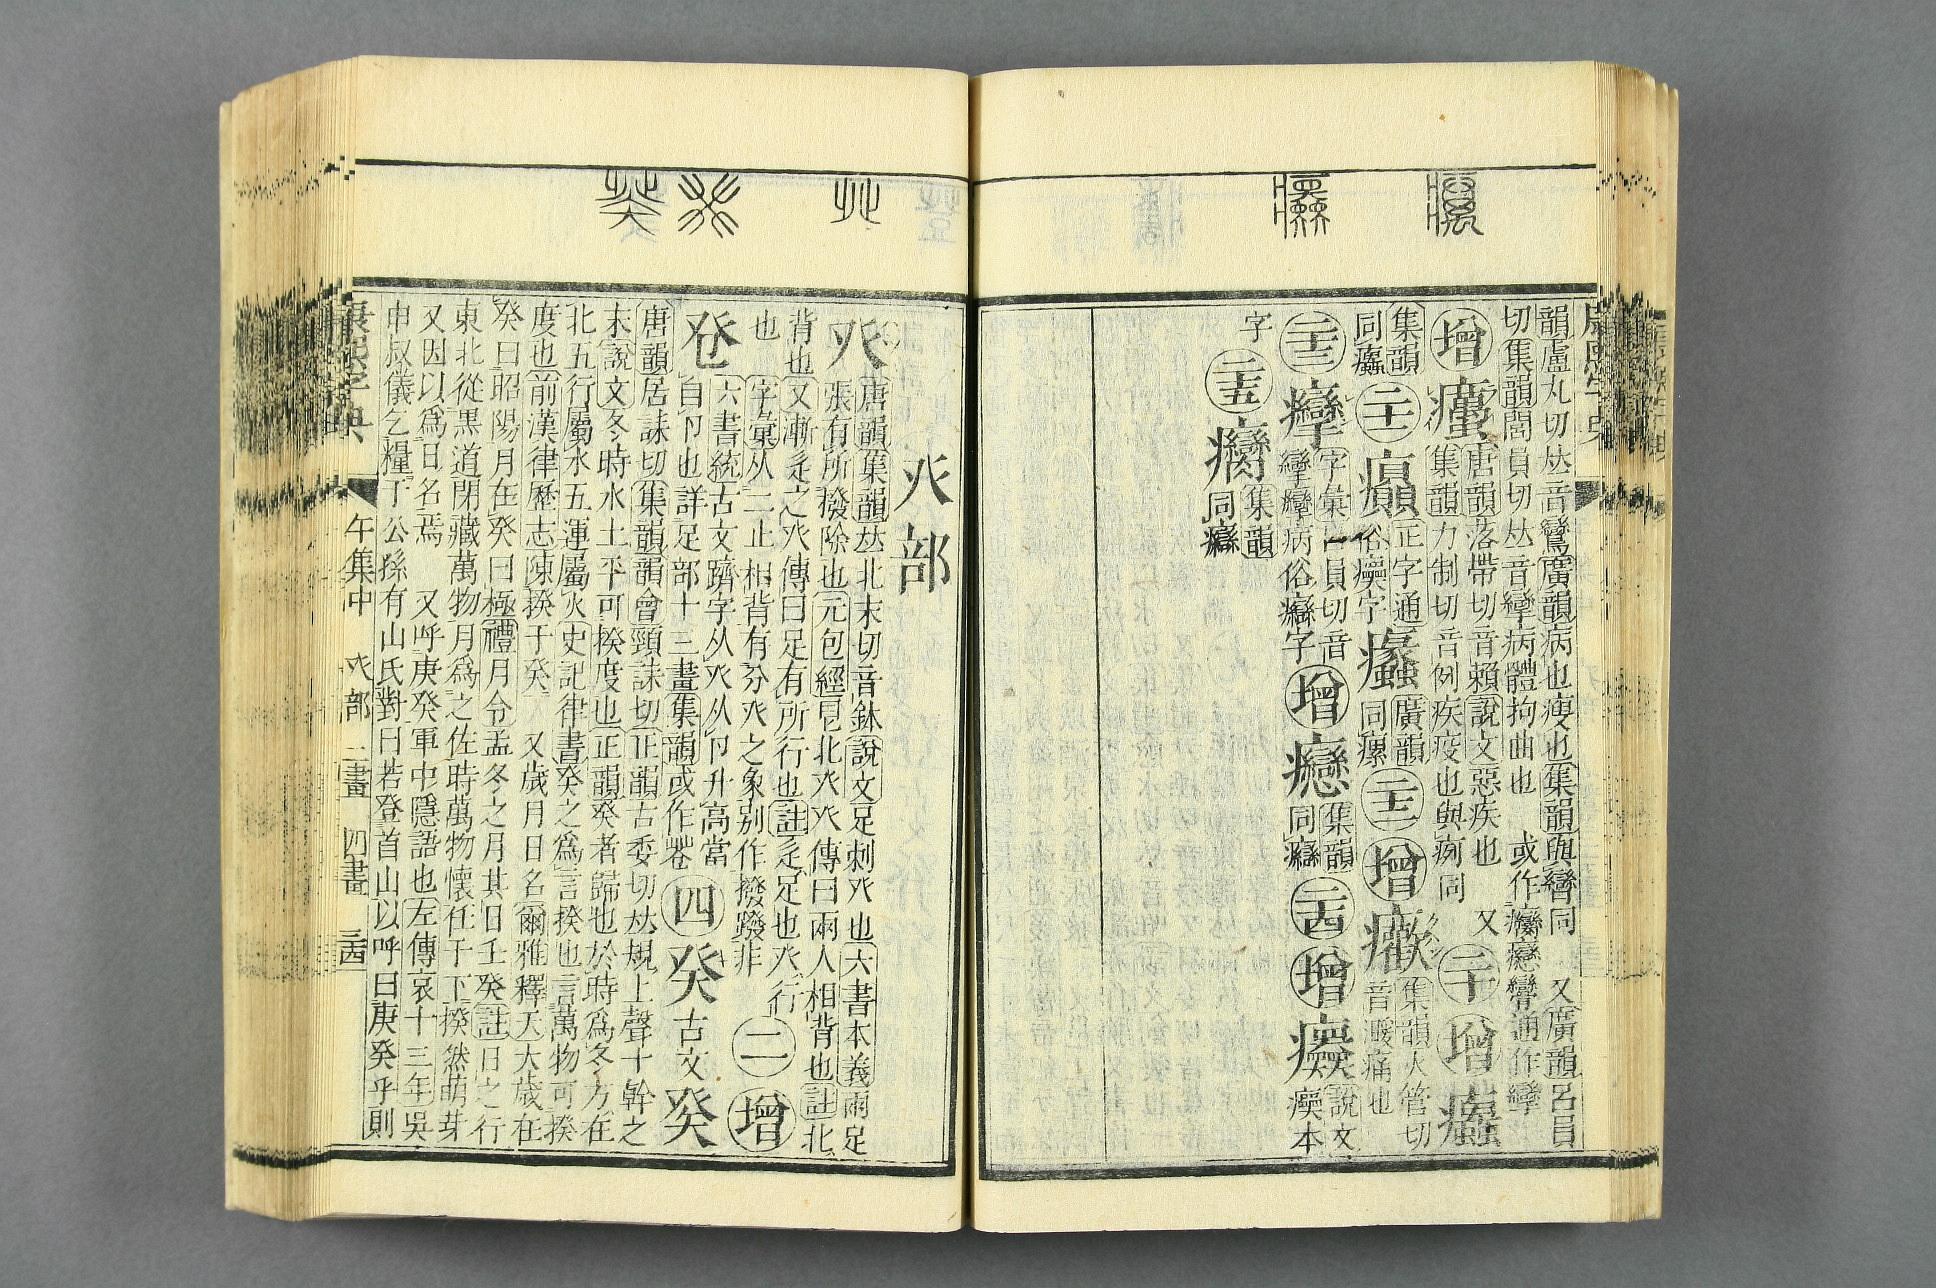 韻盧丸切𠀤音鸞廣韻病也瘦也集韻與㝈同 又廣韻呂員
切集韻閭員切𠀤音攣病體拘曲也 或作癵㝈通作攣
增癘唐韻落帶切音賴說文惡疾也 又
集韻力制切音例疾疫也與痾同 二十 增
集韻
同 二十一 癲正字通
俗瘨字 廣韻
同瘰 二十二 增 集韻火管切
音澣痛也
二十三 癴字彙 員切音
攣癴病俗癵字 增 集韻
同癵 二十四 增 說文
瘼本
字 二十五 癵集韻
同癵
癶部
癶唐韻集韻𠀤北末切音鉢說文足剌癶也六書本義兩足
張有所撥除也元包經 北癶癶傳曰兩人相背也註北
背也又漸辵之癶傳曰足有所行也註辵足也癶行
也 字彙从二止相背有分癶之象別作撥蹳非 二 增
六書統古文躋字从癶从卪升高當
自卪也詳足部十三畫集韻或作卷 四 癸古文
唐韻居誄切集韻韻會頸誄切正韻古委切𠀤規上聲十幹之
末說文冬時水土平可揆度也正韻癸者歸也於時爲冬方在
北五行屬水五運屬火史記律書癸之爲言揆也言萬物可揆
度也前漢律歷志陳揆于癸 又歲月日名爾雅釋天大歲在
癸曰昭陽月在癸曰極禮月令孟冬之月其日壬癸註日之行
東北從黑道閉藏萬物月爲之佐時萬物懷任于下揆然萌芽
又因以爲日名焉 又呼庚癸軍中隱語也左傳哀十三年吳
申叔儀乞糧于公孫有山氏對曰若登首山以呼曰庚癸乎則
康熙字典 午集中 癶部 二畫 四畫 三十四